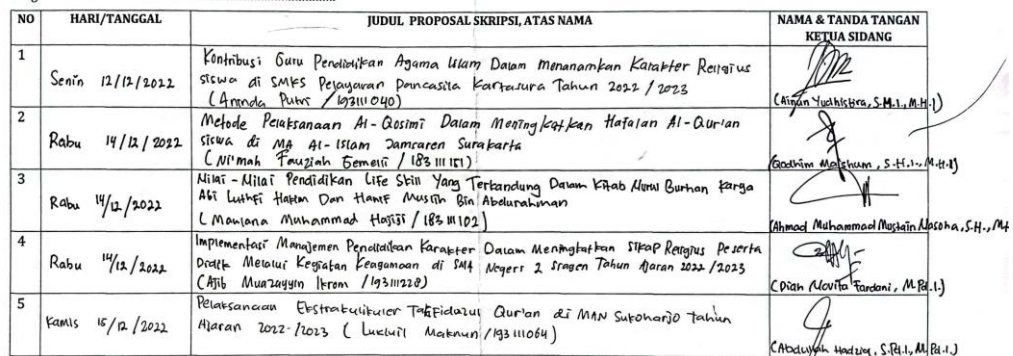 NO HARI/TANGGAL JUDUL PROPOSAL SKRIPSI, ATAS NAMA NAMA & TANDA TANGAN
KETUA SIDANG
1
Senin 12/12/2022
Kontribusi Guru Pendidikan Agama Islam Dalam Menanamkan Karakter Religius
siswa di SMKS Pelayaran Pancasila Kartasura Tahun 2022 / 2023
(Aninda Putri / 193111040)
(Ainun Yudhistira, S.H.I., M.H.I)
2
Rabu 14/12/2022
Metode Pelaksanaan Al-Qosimi Dalam Meningkatkan Hafalan Al-Qur'an
siswa di MA Al-Islam Jamsaren Surakarta
(Ni'mah Fauziah Gemelli / 183111151)
(Qodhim Ma'shum, S.H.I., M.H.I)
3
Rabu 14/12/2022
Nilai-Nilai Pendidikan Life Skill Yang Terkandung Dalam Kitab Nurul Burhan Karya
Abi Luthfi Hakim Dan Hanif Muslih Bin Abdurahman
(Maulana Muhammad / 183111102)
(Ahmad Muhammad Mustain Nasoha, S.H., MH
4
Rabu 14/12/2022
Implementasi Manajemen Pendidikan Karakter Dalam Meningkatkan Sikap Religius Peserta
Didik Melalui Kegiatan Keagamaan di SMA Negeri 2 Sragen Tahun Ajaran 2022/2023
(Ajib Muazayyin Ikrom / 193111228)
(Diah Novita Fardani, M.Pd.I.)
5
Kamis 15/12/2022
Pelaksanaan Ekstrakulikuler Tahfidzul Qur'an di MAN Sukoharjo Tahun
Ajaran 2022-/2023 (Lukluil Maknun / 193111064)
(Abdulloh Hadziq, S.Pd.I., M.Pd.I.)